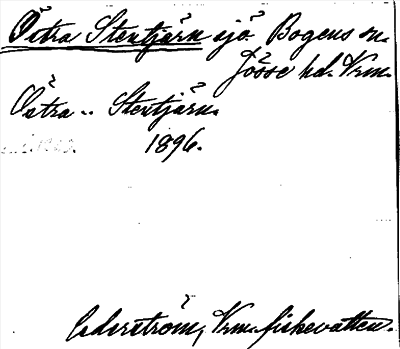 Östra Stentjärn sjö. Bogens sn.
Jösse hd. Vrm.
Östra .. Stentjärn.
1896.
Cederström, Vrm. fiskevatten.